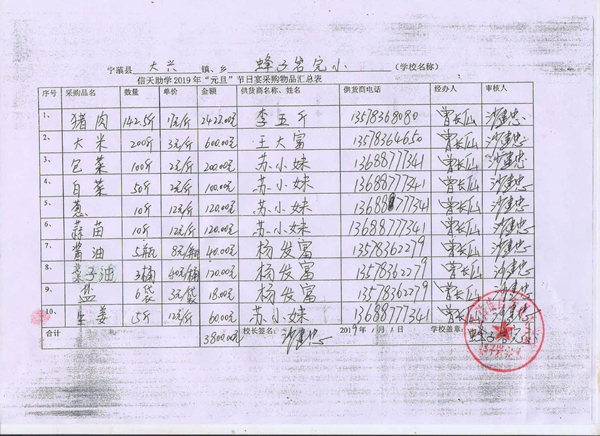 宁蒗县 大兴 镇、乡 蜂子岩完小 (学校名称)
信天助学2019年“元旦”节日宴采购物品汇总表
序号 采购品名 数量 单价 金额 供货商名称、姓名 供货商电话 经办人 审核人
1、 猪肉 142.5斤 17元/斤 2422.00元 李五斤 13578368080 曾长仙 沙建忠
2、 大米 200斤 3元/斤 600.00元 王大富 13578364650 曾长仙 沙建忠
3、 包菜 100斤 2元/斤 200.00元 苏小妹 13688777341 曾长仙 沙建忠
4、 白菜 50斤 2元/斤 100.00元 苏小妹 13688777341 曾长仙 沙建忠
5、 葱 10斤 12元/斤 120.00元 苏小妹 13688777341 曾长仙 沙建忠
6、 蒜苗 10斤 12元/斤 120.00元 苏小妹 13688777341 曾长仙 沙建忠
7、 酱油 5瓶 8元/瓶 40.00元 杨发富 13578362279 曾长仙 沙建忠
8、 菜子油 3桶 40元/桶 120.00元 杨发富 13578362279 曾长仙 沙建忠
9、 盐 6袋 3元/袋 18.00元 杨发富 13578362279 曾长仙 沙建忠
10、 生姜 5斤 12元/斤 60.00元 苏小妹 13688777341 曾长仙 沙建忠
合计 3800.00元 校长签名: 沙建忠 2019年1月1日 学校盖章: 蜂子岩完小